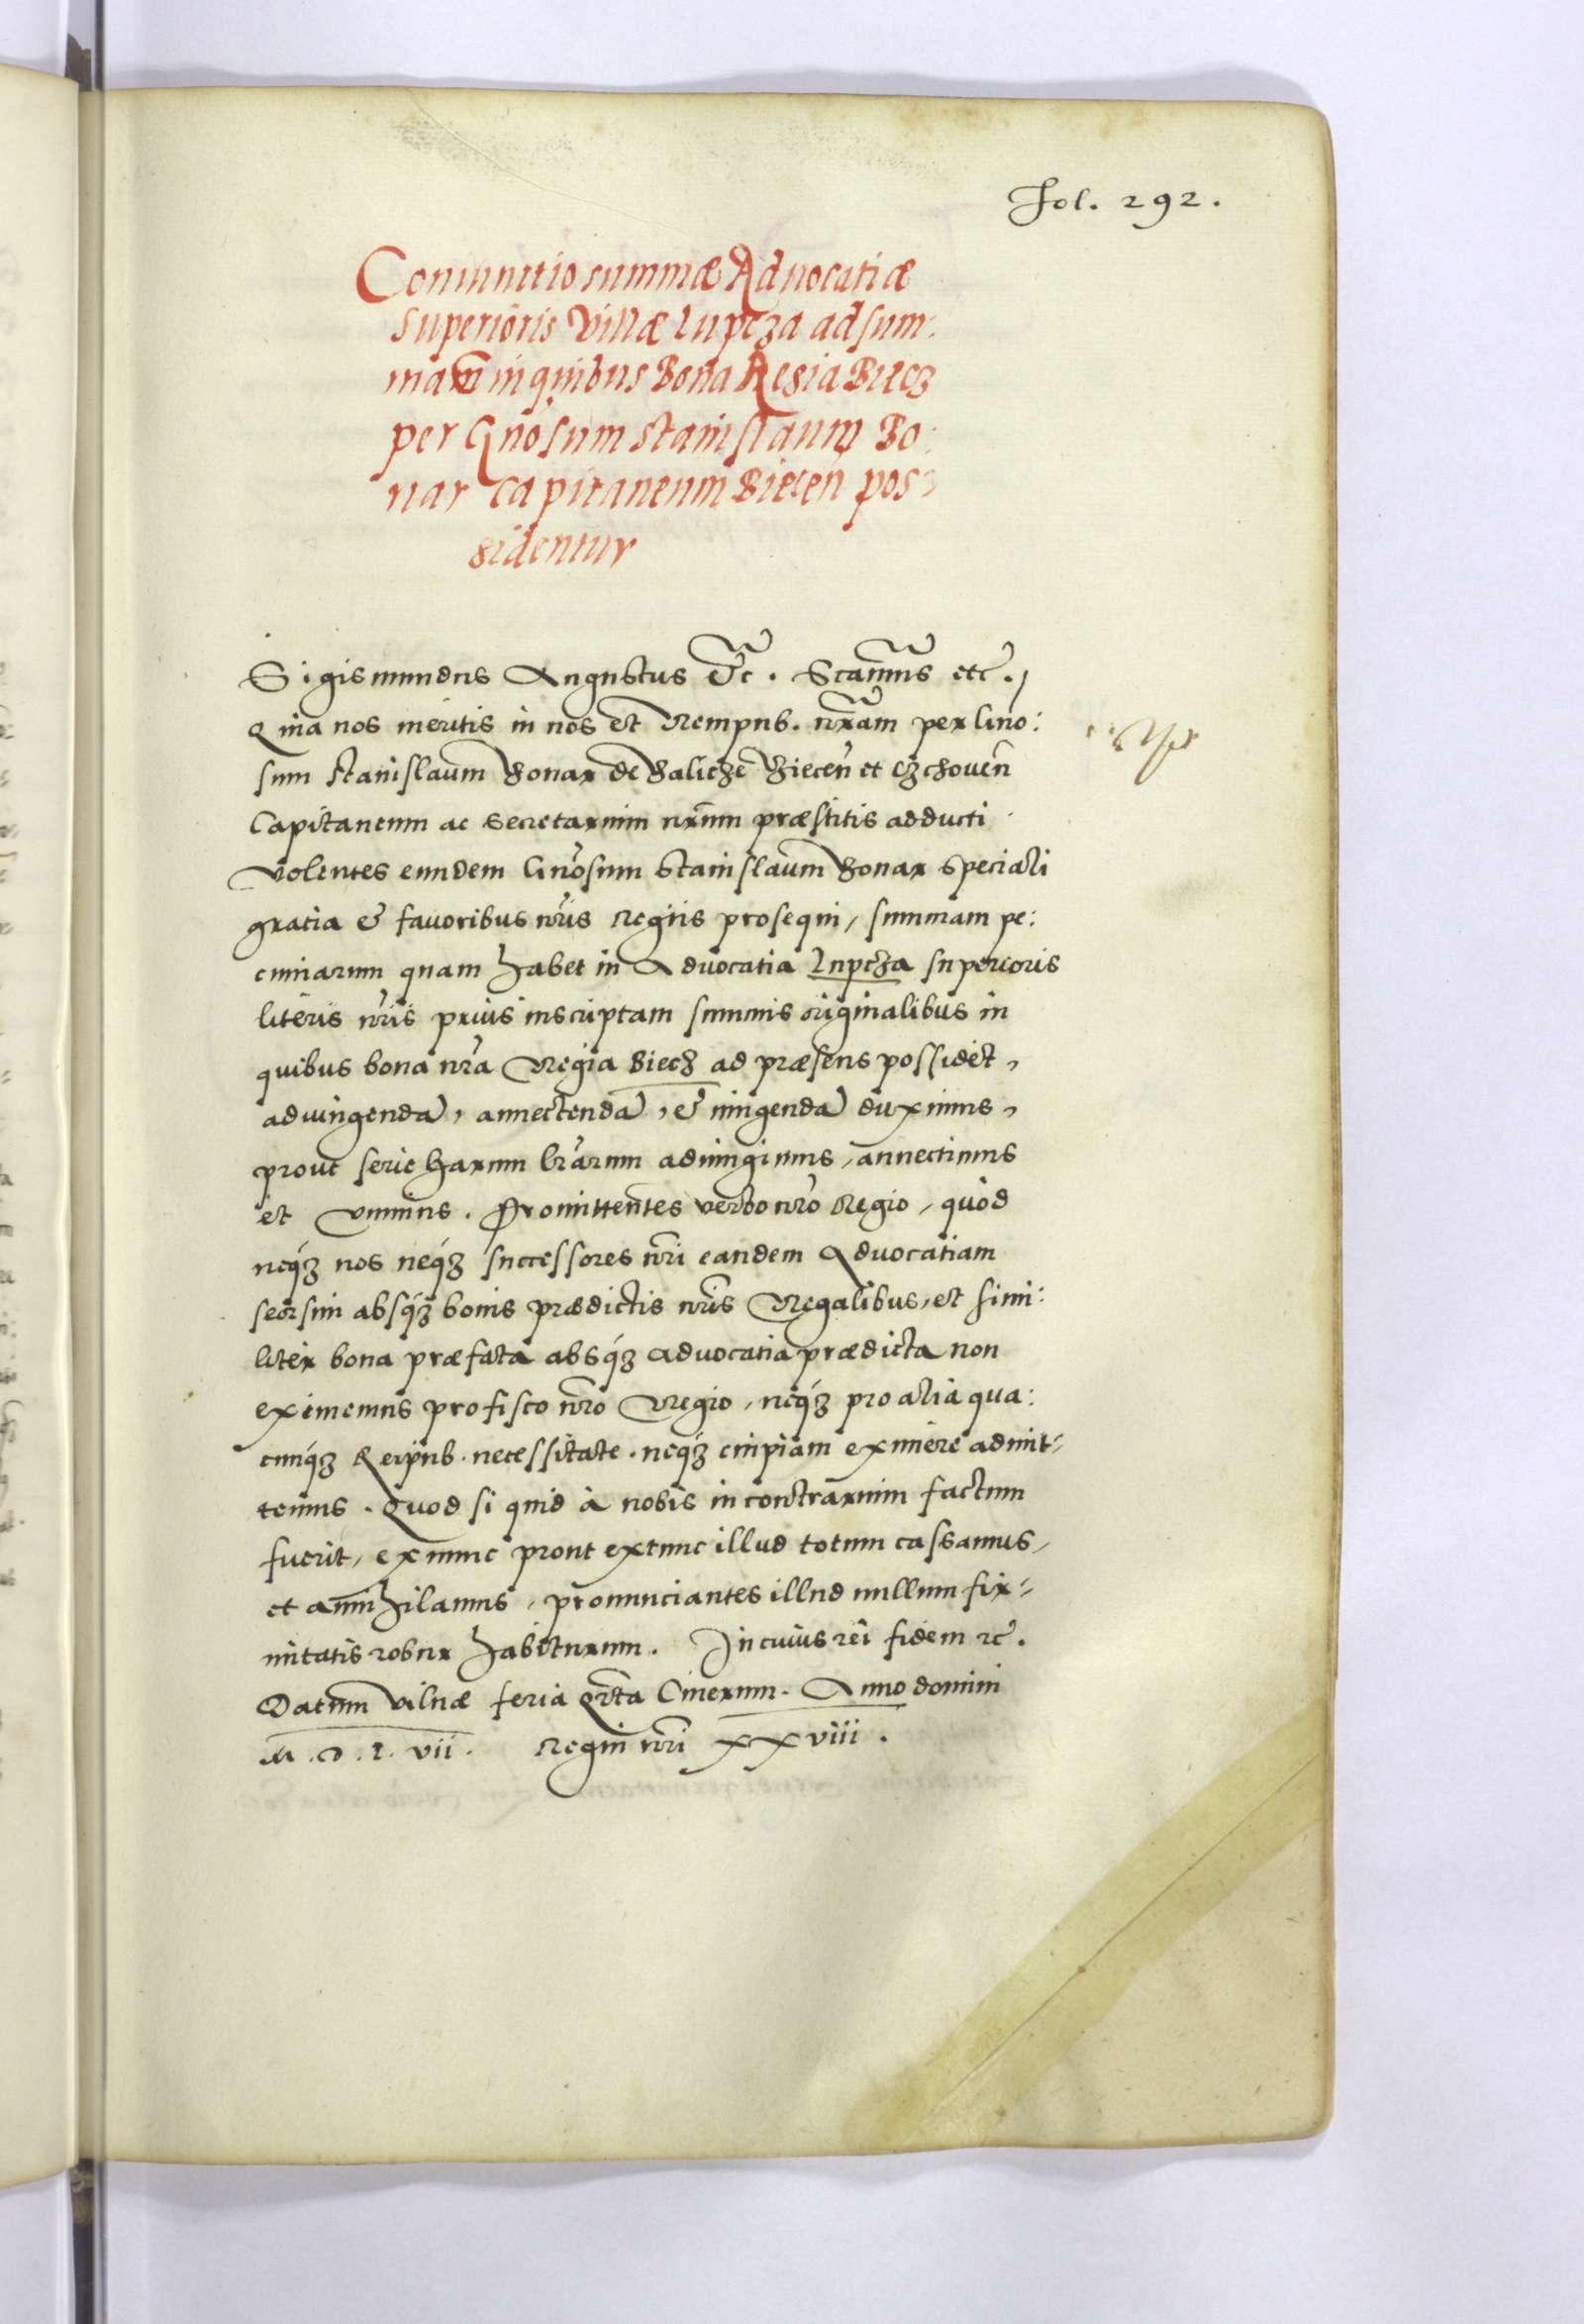 Fol. 292.
Coniunctio summæ Aduocatiæ
Superioris Villæ Lupcza ad sum:
mam in quibus Bona Regia Biecz
per Gnosum Stanislaum Bo:
nar Capitaneum Biecen pos=
sidentur
Sigismundus Augustus &c. Scamus etc.
Quia nos meritis in nos et Rempub. nram per Gno:
sum Stanislaum Bonar de Balicze Biecen et Czchoven
Capitaneum ac Secretarium nrum præstitis adducti
volentes eundem Gnosum Stanislaum Bonar speciali
gratia & favoribus nris Regiis prosequi, summam pe:
cuniarum quam habet in Advocatia Lupcza superioris
literis nris prius inscriptam summis originalibus in
quibus bona nra Regia Biecz ad præsens possidet,
adiungenda, annectenda, & iungenda duximus,
prout serie harum lrarum adiungimus, annectimus
et unimus. Promittentes verbo nro Regio, quòd
neq́ꝫ nos neq́ꝫ successores nri eandem Advocatiam
seorsim absq́ꝫ bonis prædictis nris Regalibus, et simi:
liter bona præfata absq́ꝫ advocatia prædicta non
eximemus pro fisco nro Regio, neq́ꝫ pro alia qua:
cunq́ꝫ Reipub. necessitate. neq́ꝫ cuipiam eximere admit=
temus. Quod si quid à nobis in contrarium factum
fuerit, ex nunc prout ex tunc illud totum cassamus,
et annihilamus, pronunciantes illud nullum fir=
mitatis robur habiturum. In cuius rei fidem &c.
Datum Vilnæ feria qrta Cinerum. Anno domini
M.D.L.vii. Regni nri xxviii.